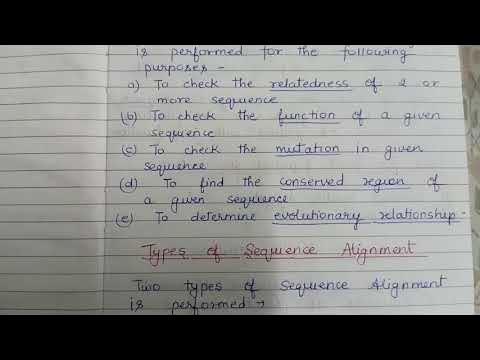 is performed for the following
purposes -
a) To check the relatedness of 2 or
more sequence
(b) To check the function of a given
sequence
(c) To check the mutation in given
sequence
(d) To find the conserved region of
a given sequence
(e) To determine evolutionary relationship -
Types of Sequence Alignment
Two types of Sequence Alignment
is performed →